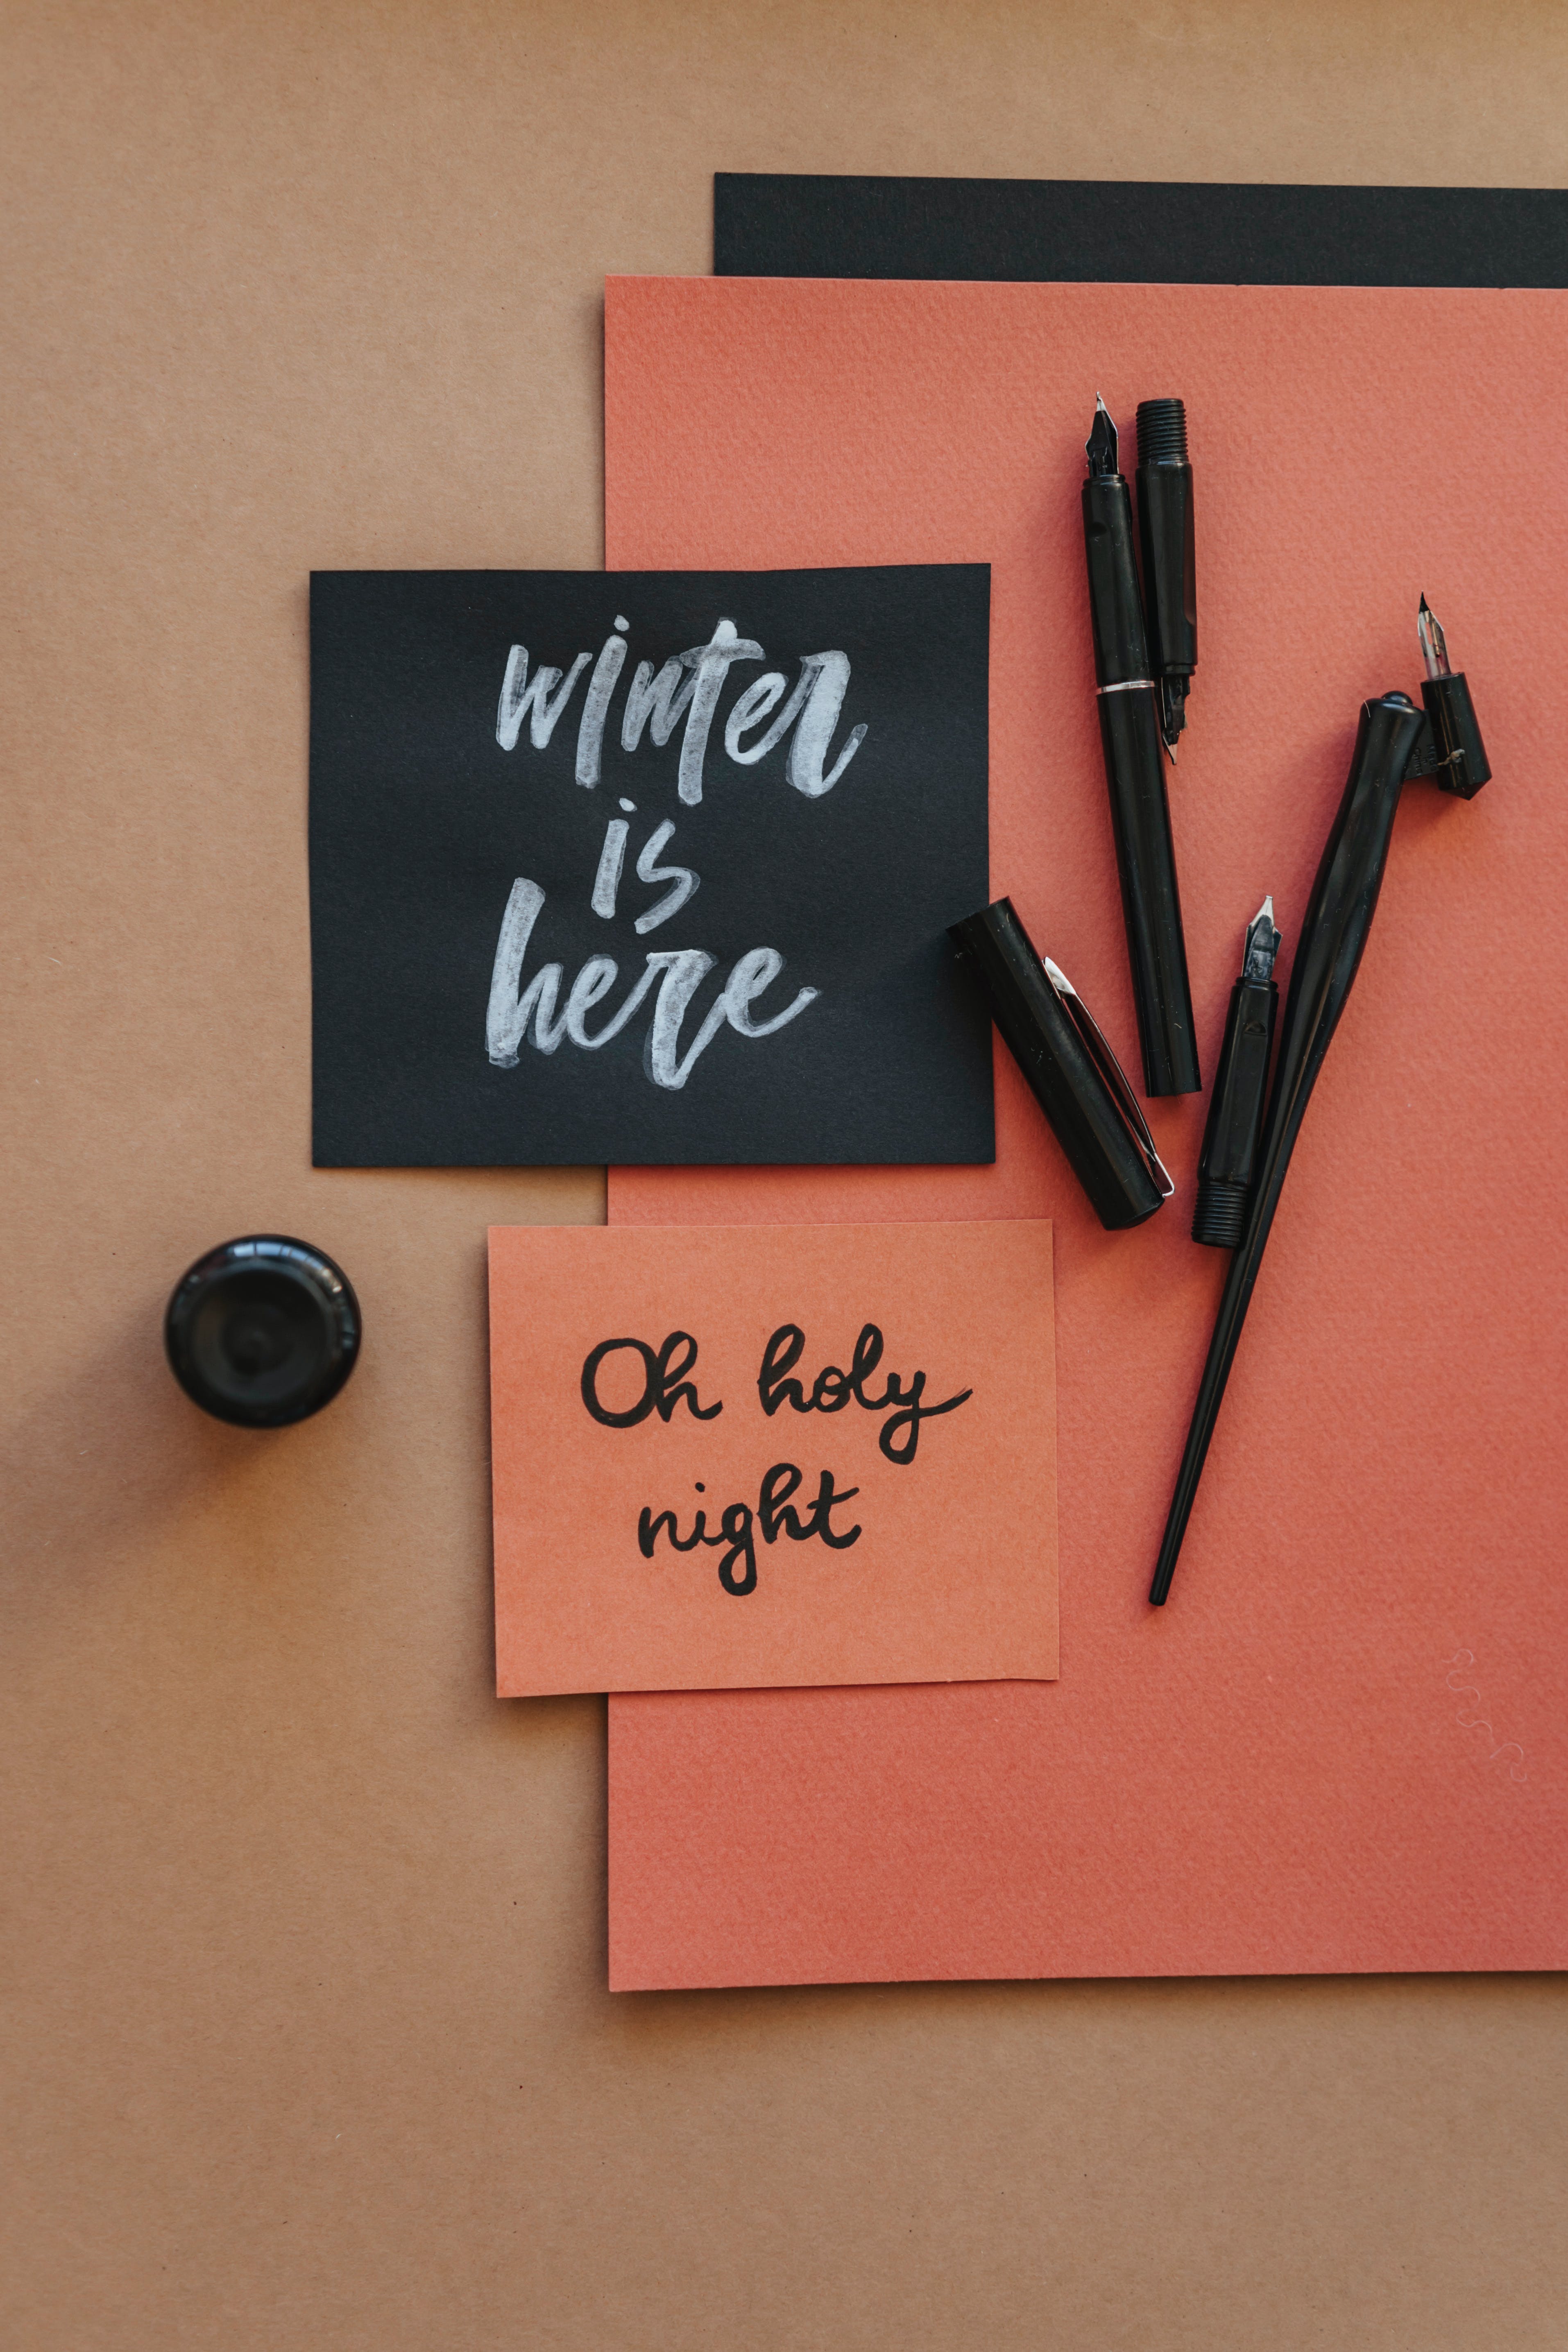 winter
is
here
Oh holy
night